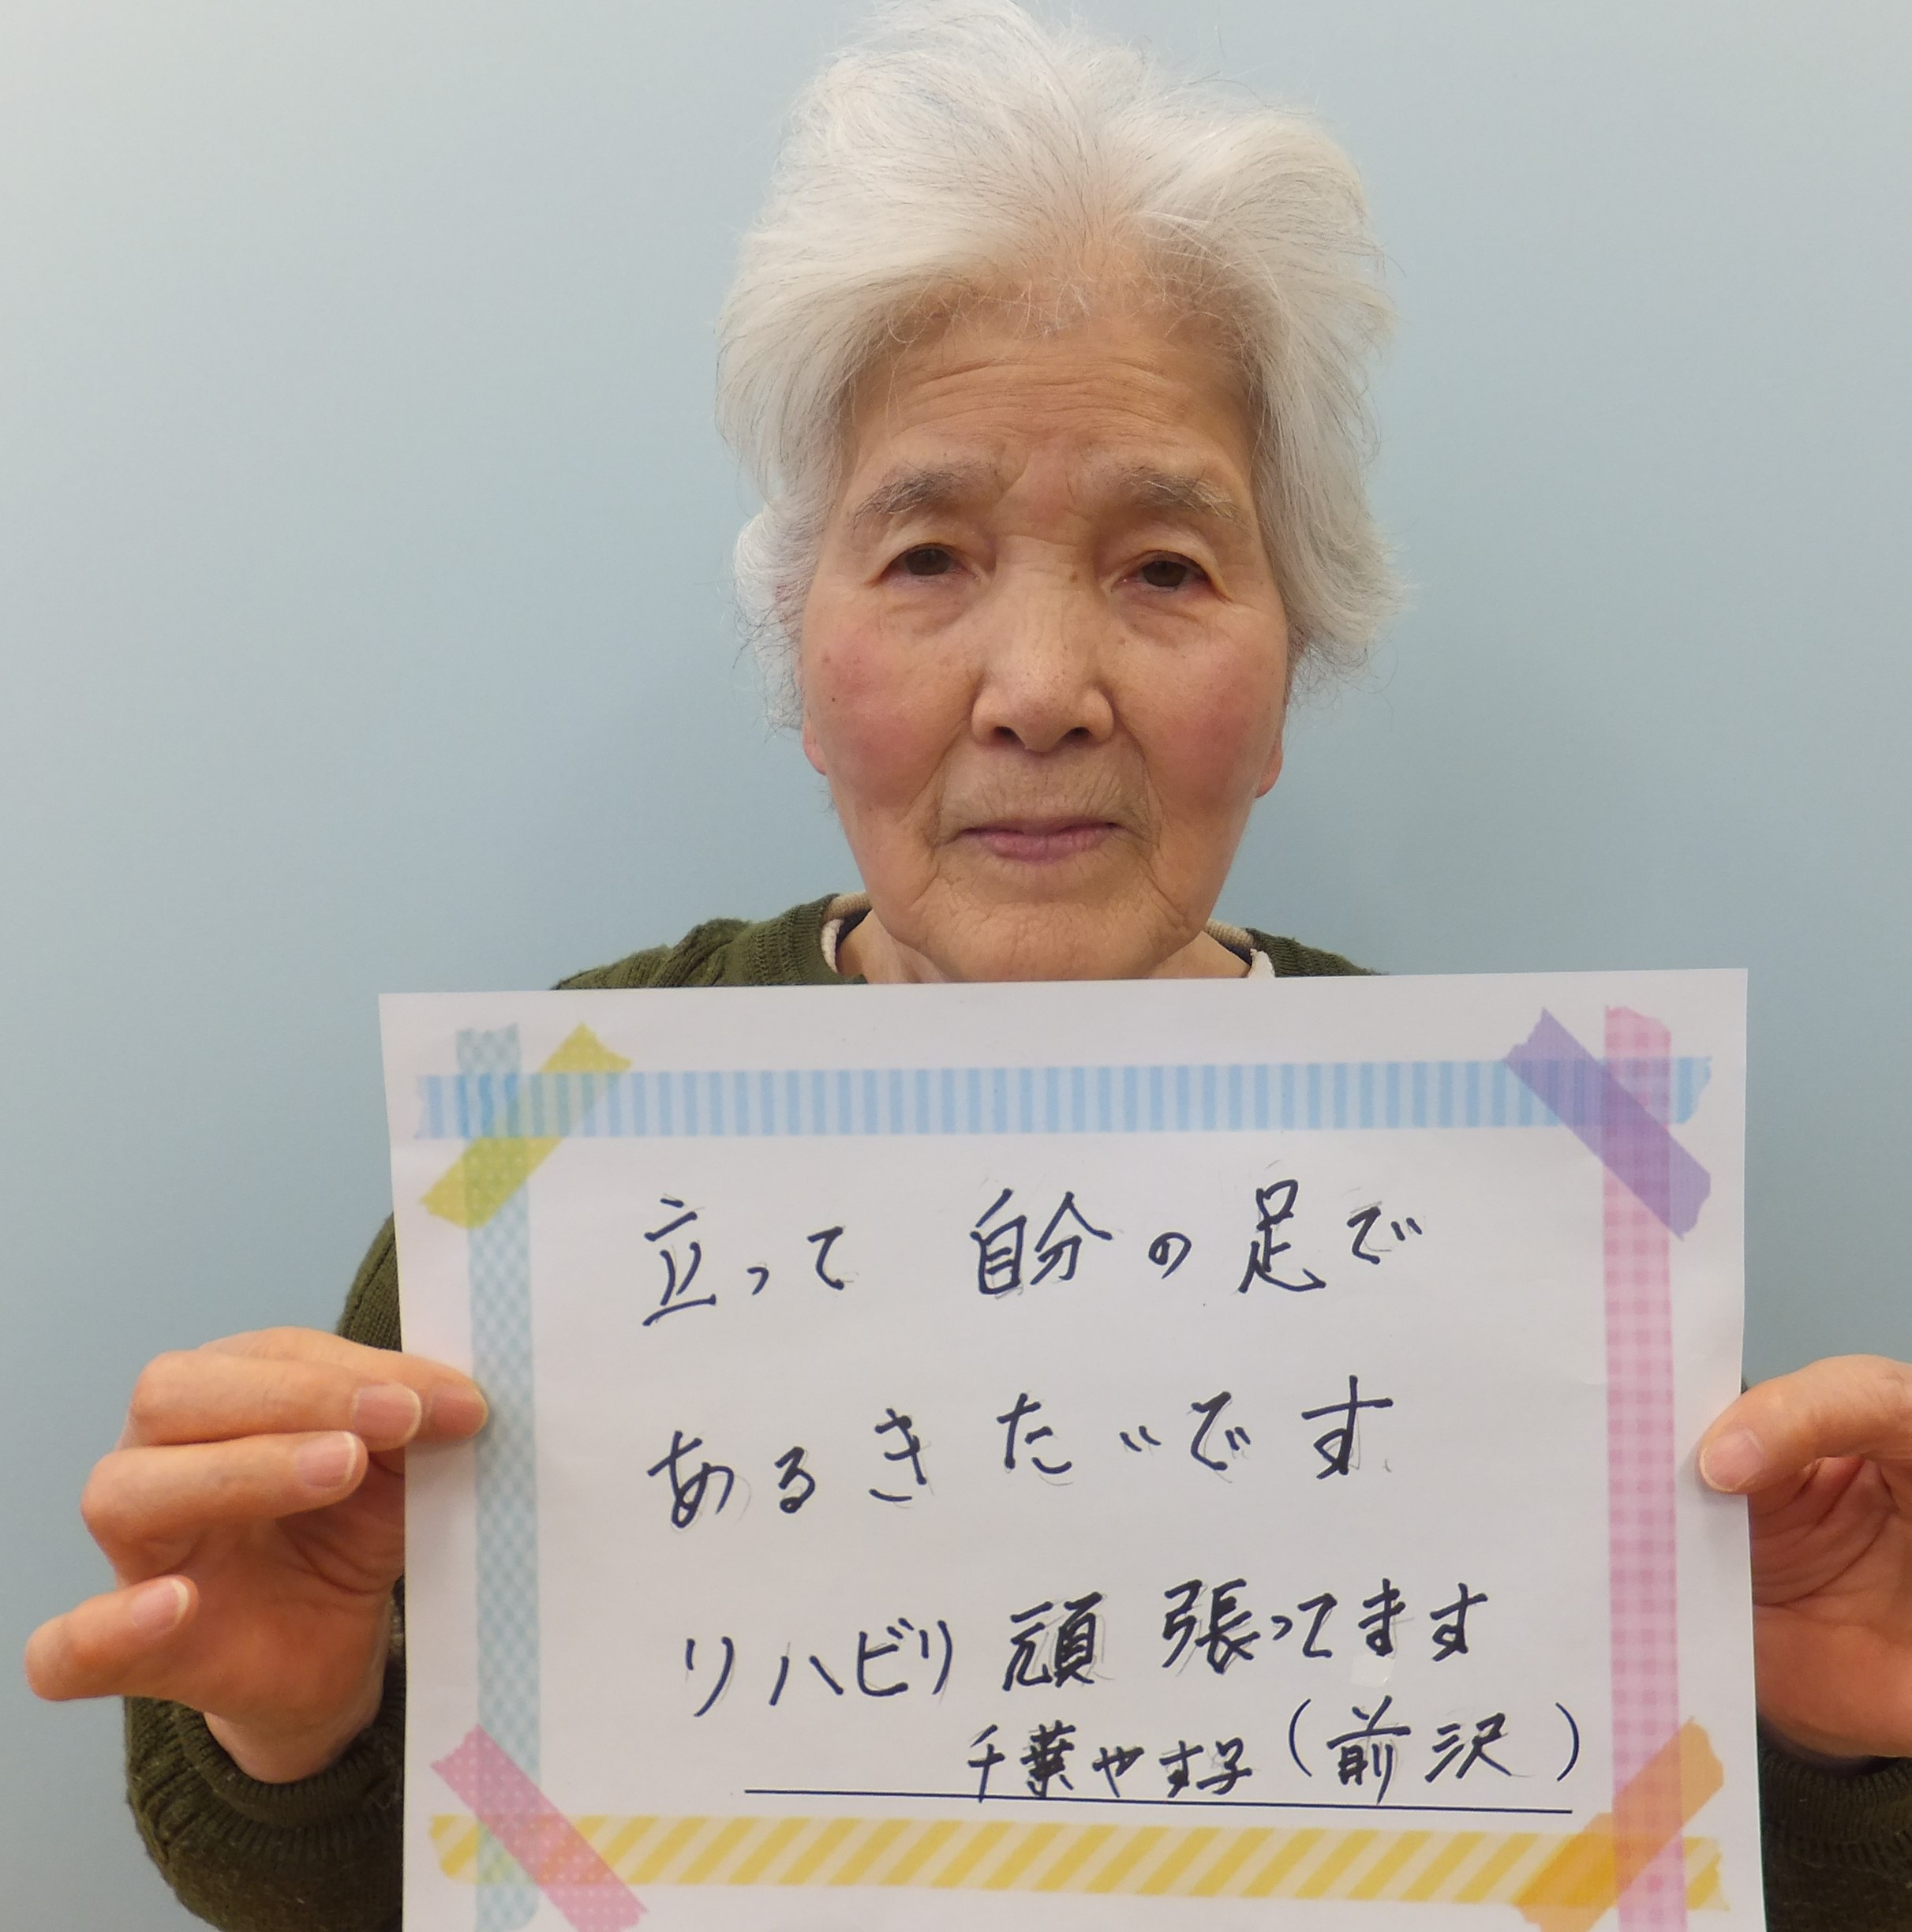 立って 自分の足で
あるきたいです
リハビリ頑張ってます
千葉やす子(前沢)